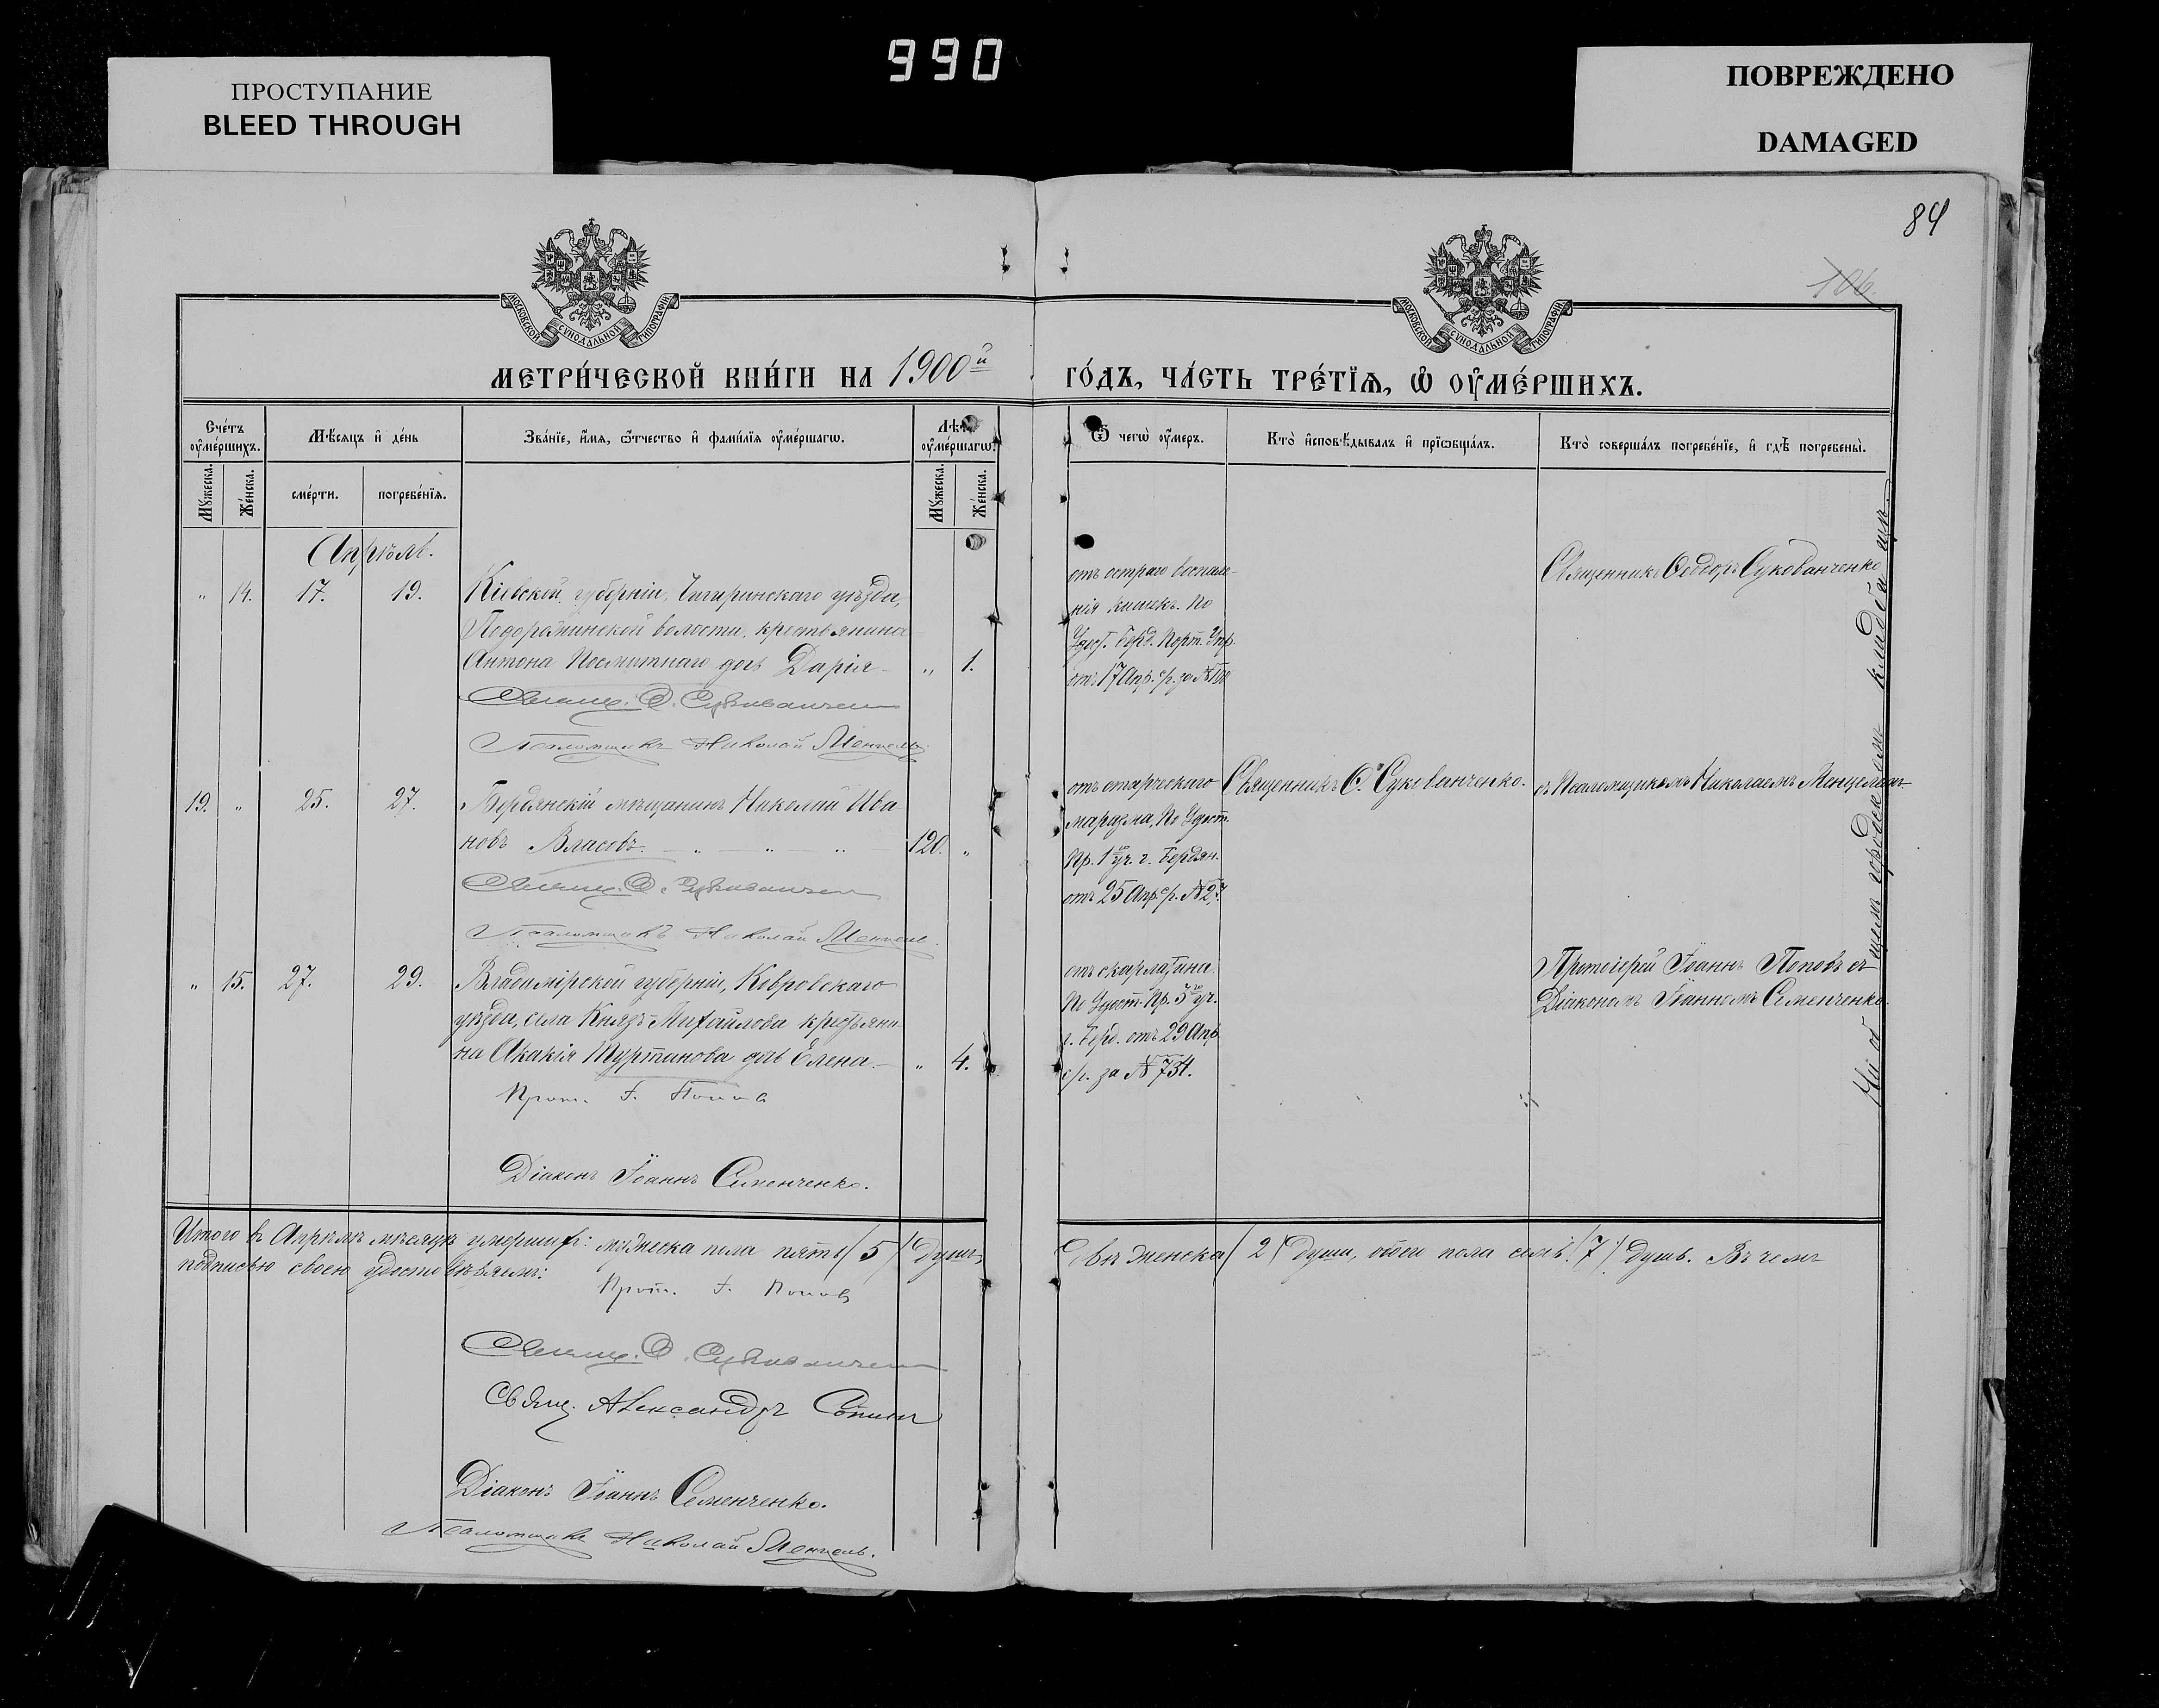 990
ПРОСТУПАНИЕ
BLEED THROUGH
ПОВРЕЖДЕНО
DAMAGED
84
106.
МОСКОВСКОЙ СѴНОДАЛЬНОЙ ТИПОГРАФІИ
МОСКОВСКОЙ СѴНОДАЛЬНОЙ ТИПОГРАФІИ
МЕТРИ́ЧЕСКОЙ КНИ́ГИ НА 1900й ГО́ДЪ, ЧА́СТЬ ТРЕ́ТЇѦ, Ѡ҆ ОУ҆МЕ́РШИХЪ.
Сче́тъ оу҆ме́ршихъ.
Мꙋ́жеска.
Же́нска.
Мѣ́сяцъ и҆ де́нь
сме́рти.
погребе́нїѧ.
Зва́нїе, и҆́мѧ, ѻ҆́тчество и҆ фами́лїѧ оу҆ме́ршагѡ.
Лѣ́та оу҆ме́ршагѡ.
Мꙋ́жеска.
Же́нска.
Ѿ чегѡ̀ оу҆́меръ.
Кто̀ и҆сповѣ́дывалъ и҆ прїѡбща́лъ.
Кто̀ соверша́лъ погребе́нїе, и҆ гдѣ̀ погребены̀.
Апрѣль.
„ 14. 17. 19. Кіевской губерніи, Чигиринскаго уѣзда,
Подорожинской волости, крестьянина
Антона Посмитнаго дочь Дарія „ 1.
Свящ. Ѳ. Сукованчен
Псаломщикъ Николай Менцель.
отъ остраго воспале-
нія кишекъ. По
Удост. Берд. Порт. Упр.
отъ 17 Апр. с/г. за №
Священникъ Ѳеодоръ Сукованченко
19. „ 25. 27. Бердянскій мѣщанинъ Николай Ива
новъ Власовъ. „ „ „ 120. „
Свящ. Ѳ. Сукованчен
Псаломщикъ Николай Менцель.
отъ старческаго
маразма, По Удост.
Пр. 1го уч. г. Бердян.
отъ 25 Апр. с/г. № 27.
Священникъ Ѳ. Сукованченко.
съ Псаломщикомъ Николаемъ Менцелемъ
„ 15. 27. 29. Владимірской губерніи, Ковровскаго
уѣзда, села Князь-Михайлова крестьяни-
на Акакія Туртанова дочь Елена. „ 4.
Прот. І. Поповъ
Діаконъ Іоаннъ Семенченко.
отъ скарлатина
По Удост. Пр. 3го уч.
г. Берд. отъ 29 Апр.
с/г. за № 734.
Протоіерей Іоаннъ Поповъ съ
Діакономъ Іоанномъ Семенченко.
На общемъ городскомъ кладбищѣ.
Итого въ Апрѣлѣ мѣсяцѣ умершихъ: мужеска пола пять (5) душъ, двѣ женска (2) души, обоего пола семь (7) душъ. Въ чемъ
подписью своею удостовѣряемъ:
Прот. І. Поповъ
Свящ. Ѳ. Сукованчен
Свящ. Александръ
Діаконъ Іоаннъ Семенченко.
Псаломщикъ Николай Менцель.